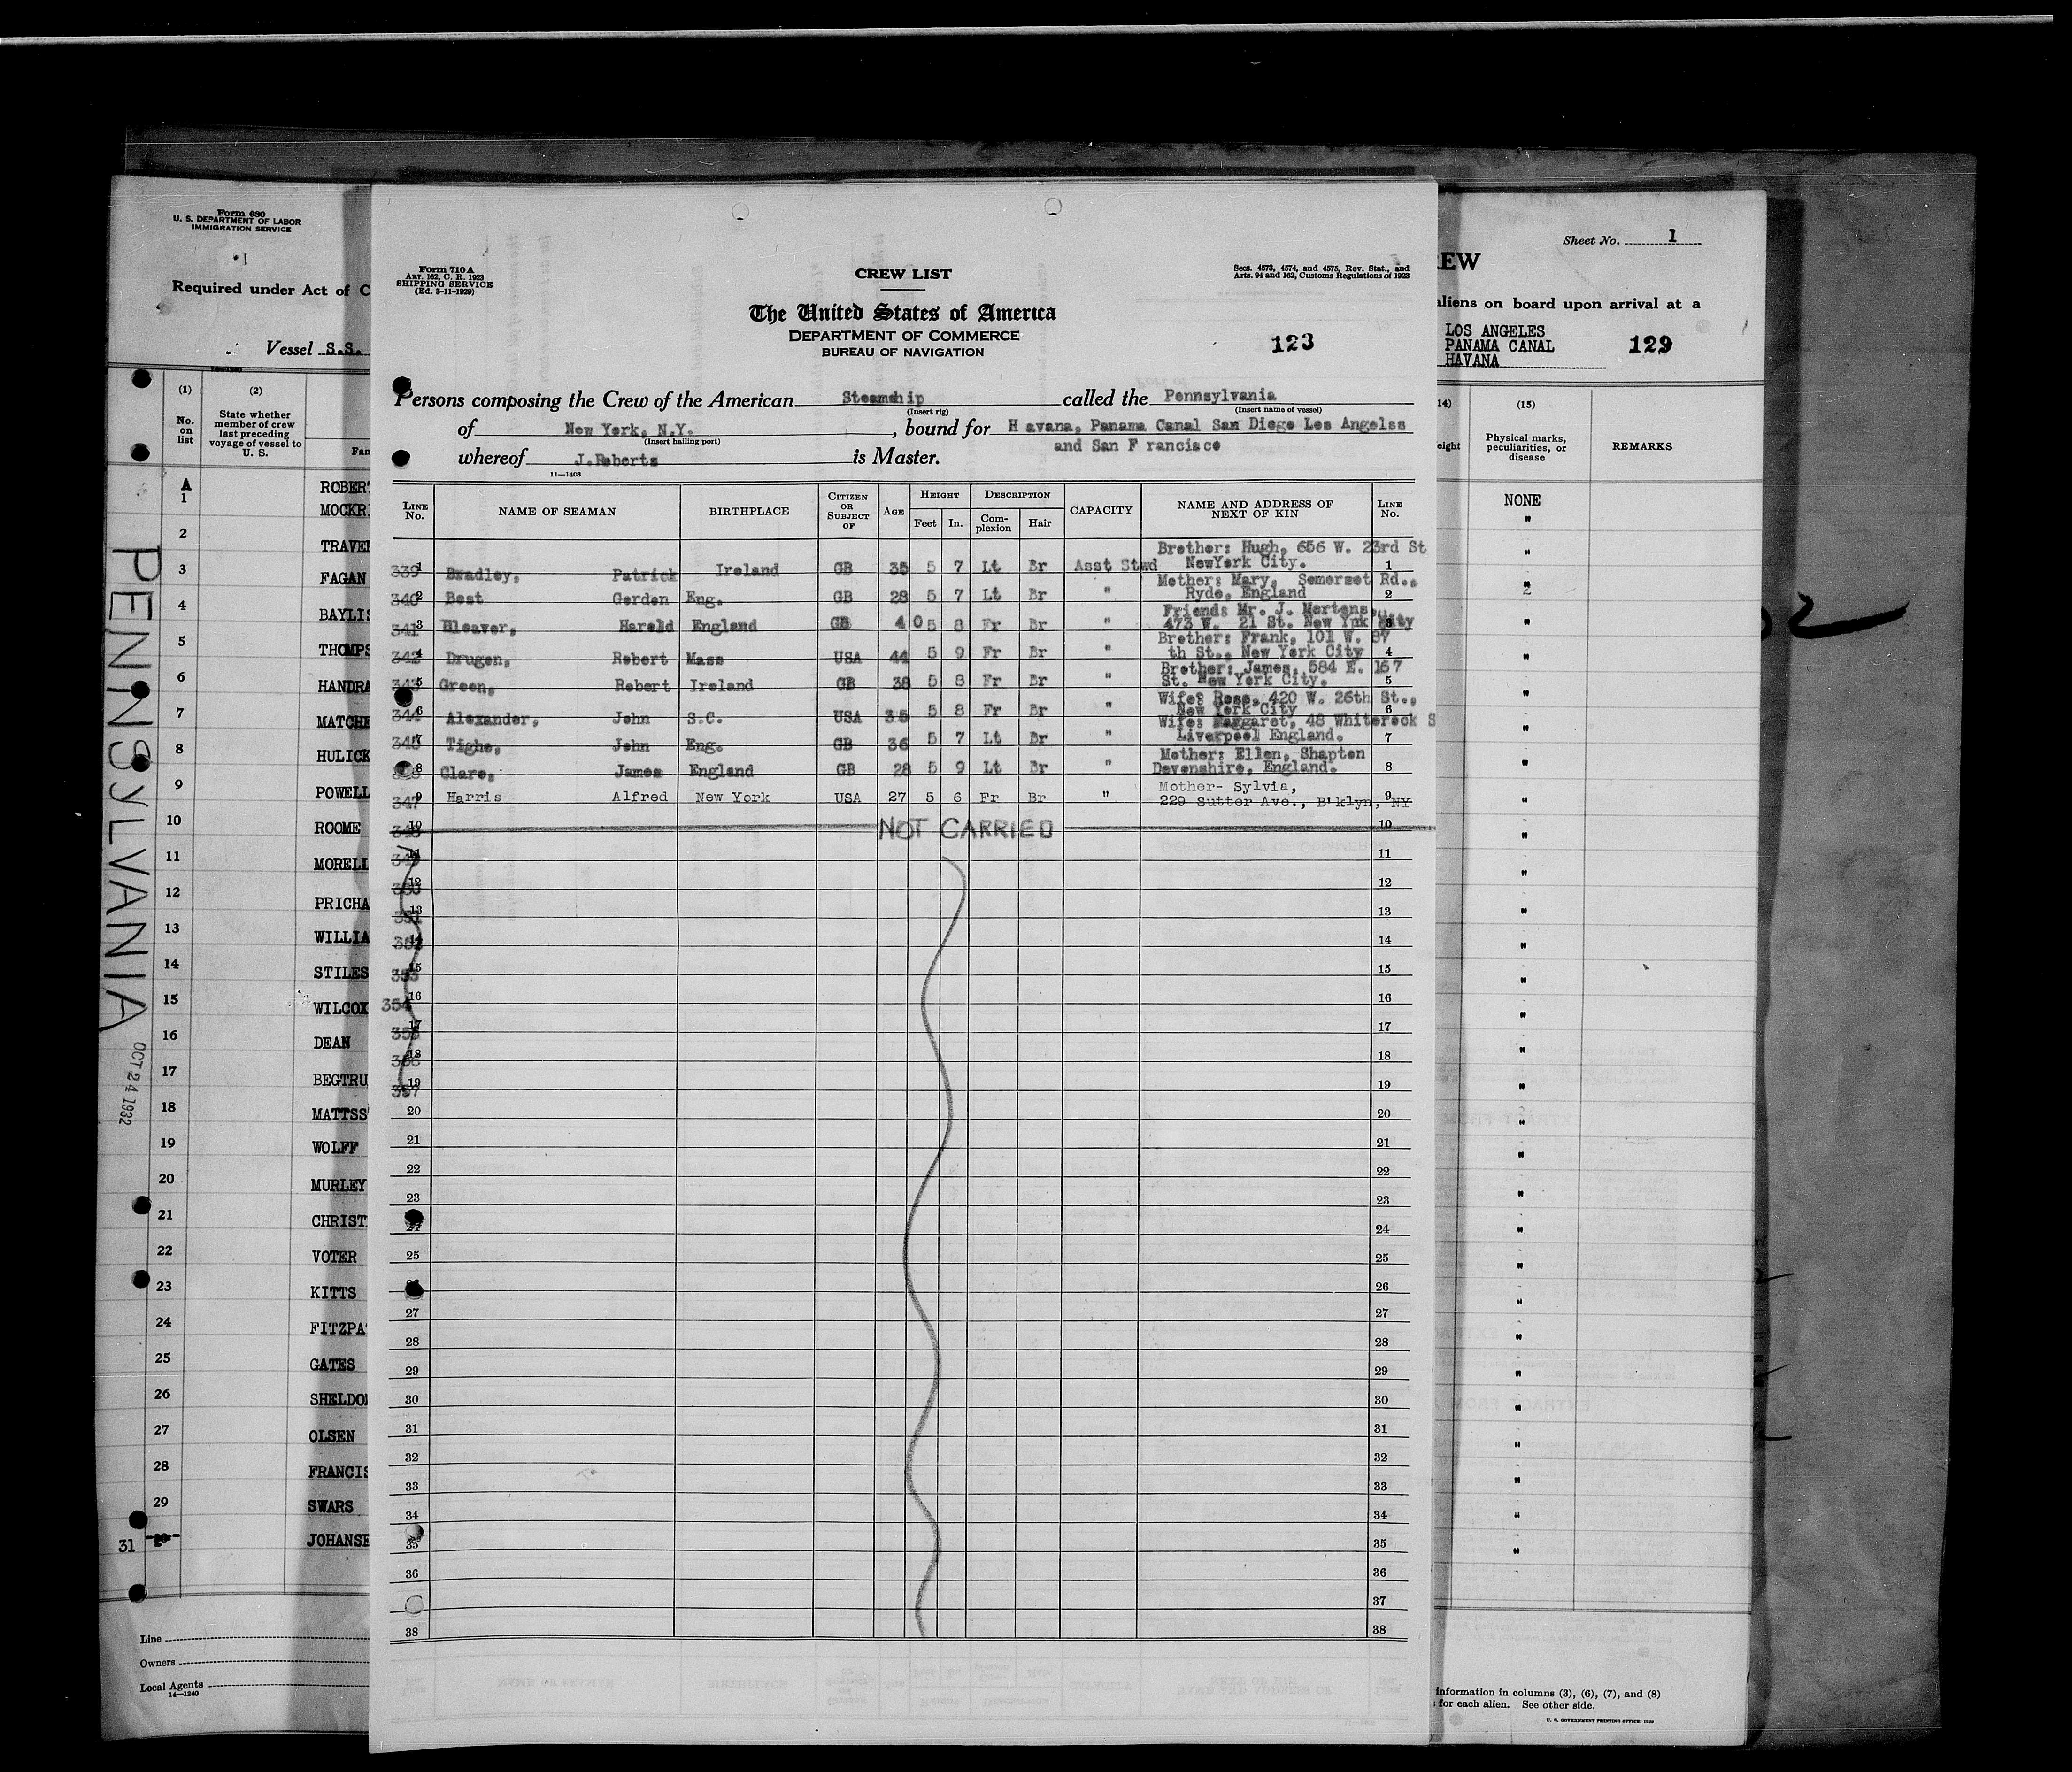 Form 680
U. S. DEPARTMENT OF LABOR
IMMIGRATION SERVICE
Required under Act of C
Vessel S.S.
(1) (2)
No. on list
State whether member of crew last preceding voyage of vessel to U. S.
Fam
A
1 ROBERT
MOCKR
2 TRAVE
3 FAGAN
4 BAYLIS
5 THOMPS
6 HANDRA
7 MATCHE
8 HULICK
9 POWELL
10 ROOME
11 MORELL
12 PRICHA
13 WILLIA
14 STILES
15 WILCOX
16 DEAN
17 BEGTRU
18 MATTSS
19 WOLFF
20 MURLEY
21 CHRIST
22 VOTER
23 KITTS
24 FITZPA
25 GATES
26 SHELDON
27 OLSEN
28 FRANCIS
29 SWARS
31 JOHANSE
Line
Owners
Local Agents
14—1240
PENNSYLVANIA
OCT 24 1932
Form 710 A
ART. 162, C. R. 1923
SHIPPING SERVICE
(Ed. 3-11-1929)
CREW LIST
Secs. 4573, 4574, and 4575, Rev. Stat., and
Arts. 94 and 162, Customs Regulations of 1923
The United States of America
DEPARTMENT OF COMMERCE
BUREAU OF NAVIGATION
123
Persons composing the Crew of the American Steamship called the Pennsylvania
(Insert rig) (Insert name of vessel)
of New York, N.Y. , bound for H avana, Panama Canal San Diego Los Angeles
(Insert hailing port)
and San F rancisco
whereof J.Roberts is Master.
11—1408
LINE No. NAME OF SEAMAN BIRTHPLACE CITIZEN OR SUBJECT OF AGE HEIGHT Feet In. DESCRIPTION Complexion Hair CAPACITY NAME AND ADDRESS OF NEXT OF KIN LINE No.
Brother: Hugh, 656 W. 23rd St
339 1 Bradley, Patrick Ireland GB 35 5 7 Lt Br Asst Stwd NewYork City. 1
Mother: Mary, Somerset Rd.,
340 2 Best Gordon Eng. GB 28 5 7 Lt Br " Ryde, England 2
Friends Mr. J. Mertens,
341 3 Bleaver, Harold England GB 40 5 8 Fr Br " 473 W. 21 St. New York City 3
Brother: Frank, 101 W. 87
342 4 Drugen, Robert Mass USA 44 5 9 Fr Br " th St., New York City 4
Brother: James, 584 E. 167
343 5 Green, Robert Ireland GB 38 5 8 Fr Br " St. New York City. 5
Wife: Rose, 420 W. 26th St.,
344 6 Alexander, John S.C. USA 35 5 8 Fr Br " New York City 6
Wife: Margaret, 48 Whitereck S
345 7 Tighe, John Eng. GB 36 5 7 Lt Br " Liverpool England. 7
Mother: Ellen, Shapton
8 Clare, James England GB 28 5 9 Lt Br " Devonshire, England. 8
Mother- Sylvia,
347 9 Harris Alfred New York USA 27 5 6 Fr Br " 229 Sutter Ave., B'klyn, NY 9
348 10 NOT CARRIED 10
349 11 11
350 12 12
351 13 13
352 14 14
353 15 15
354 16 16
355 17 17
356 18 18
357 19 19
20 20
21 21
22 22
23 23
24 24
25 25
26 26
27 27
28 28
29 29
30 30
31 31
32 32
33 33
34 34
35 35
36 36
37
38 38
Sheet No. 1
EW
aliens on board upon arrival at a
LOS ANGELES
PANAMA CANAL
HAVANA
129
14) (15)
eight
Physical marks, peculiarities, or disease
REMARKS
NONE
information in columns (3), (6), (7), and (8)
for each alien. See other side.
U. S. GOVERNMENT PRINTING OFFICE